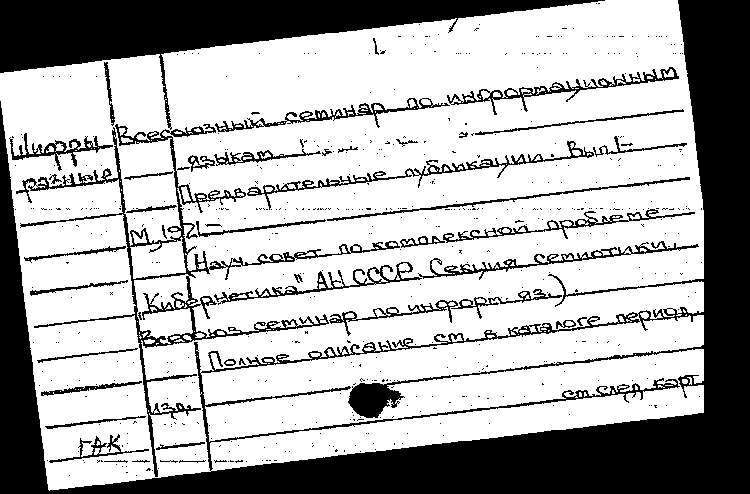 Шифры
разные
Всесоюзный семинар по информационным
языкам
Предварительные публикации. Вып.1-
М., 1971-
(Науч. совет по комплексной проблеме
"Кибернетика" АН СССР. Секция семиотики.
Всесоюз. семинар по информ. яз.).
Полное описание см. в каталоге период.
изд.
см. след. карт.
ГАК